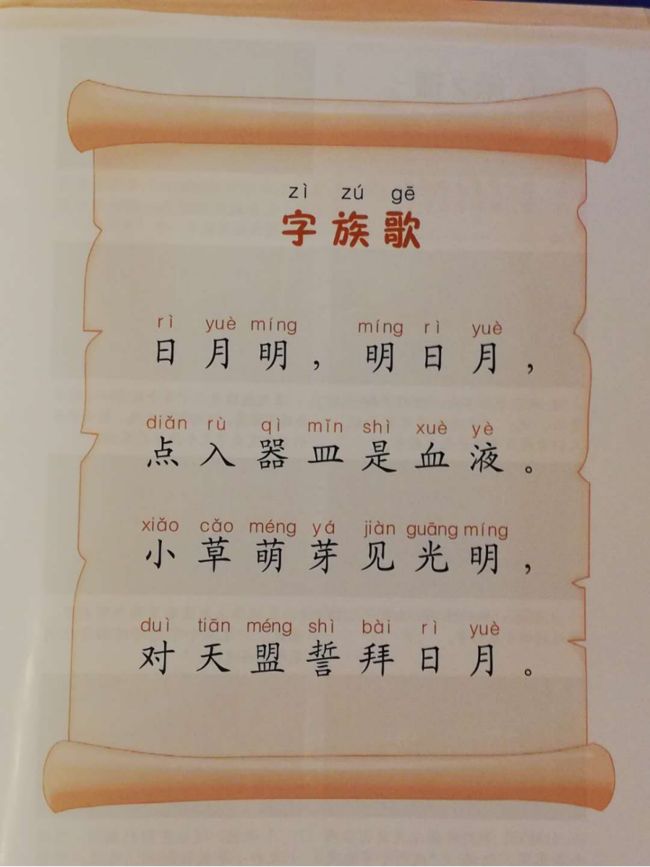 zì zú gē
字族歌
rì yuè míng míng rì yuè
日月明，明日月，
diǎn rù qì mǐn shì xuè yè
点入器皿是血液。
xiǎo cǎo méng yá jiàn guāng míng
小草萌芽见光明，
duì tiān méng shì bài rì yuè
对天盟誓拜日月。